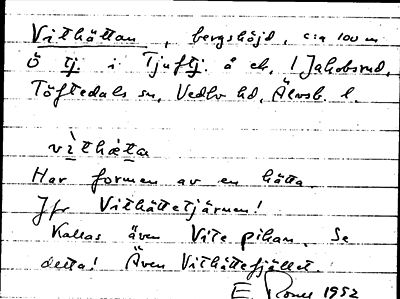 Vithättan, bergshöjd, c:a 100 m
Ö tj. i Tjuftj. å ek. 1 Jakobsrud,
Töftedals sn, Vedbo hd, Älvsb. l.
vìthæ̀ta
Har formen av en hätta.
Jfr Vithättetjärnen!
Kallas även Vite pihan. Se
detta! Även Vithättefjället.
E. 1952